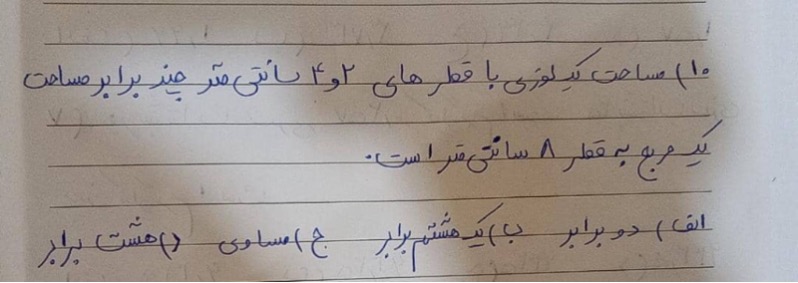 ۱۰) مساحت یک لوزی با قطر های ۲ و ۴ سانتی متر چند برابر مساحت
یک مربع به قطر ۸ سانتی متر است.
الف) دو برابر ب) یک هشتم برابر ج) مساوی د) هشت برابر